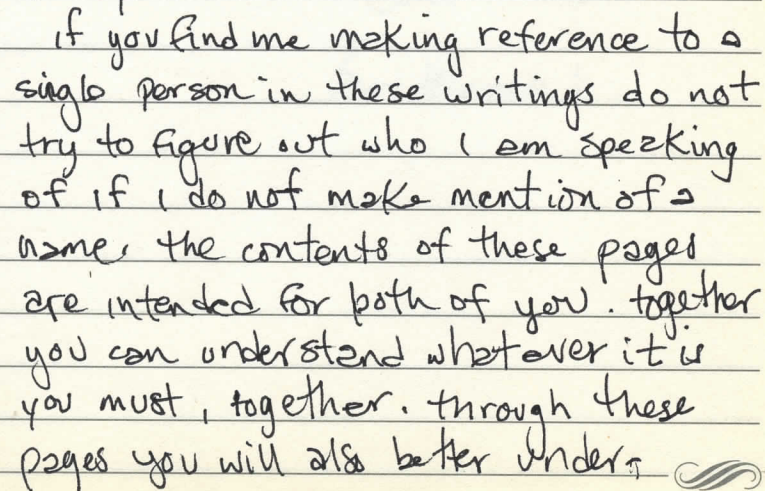 if you find me making reference to a
single person in these writings do not
try to figure out who i am speaking
of if i do not make mention of a
name. the contents of these pages
are intended for both of you. together
you can understand whatever it is
you must, together. through these
pages you will also better under-